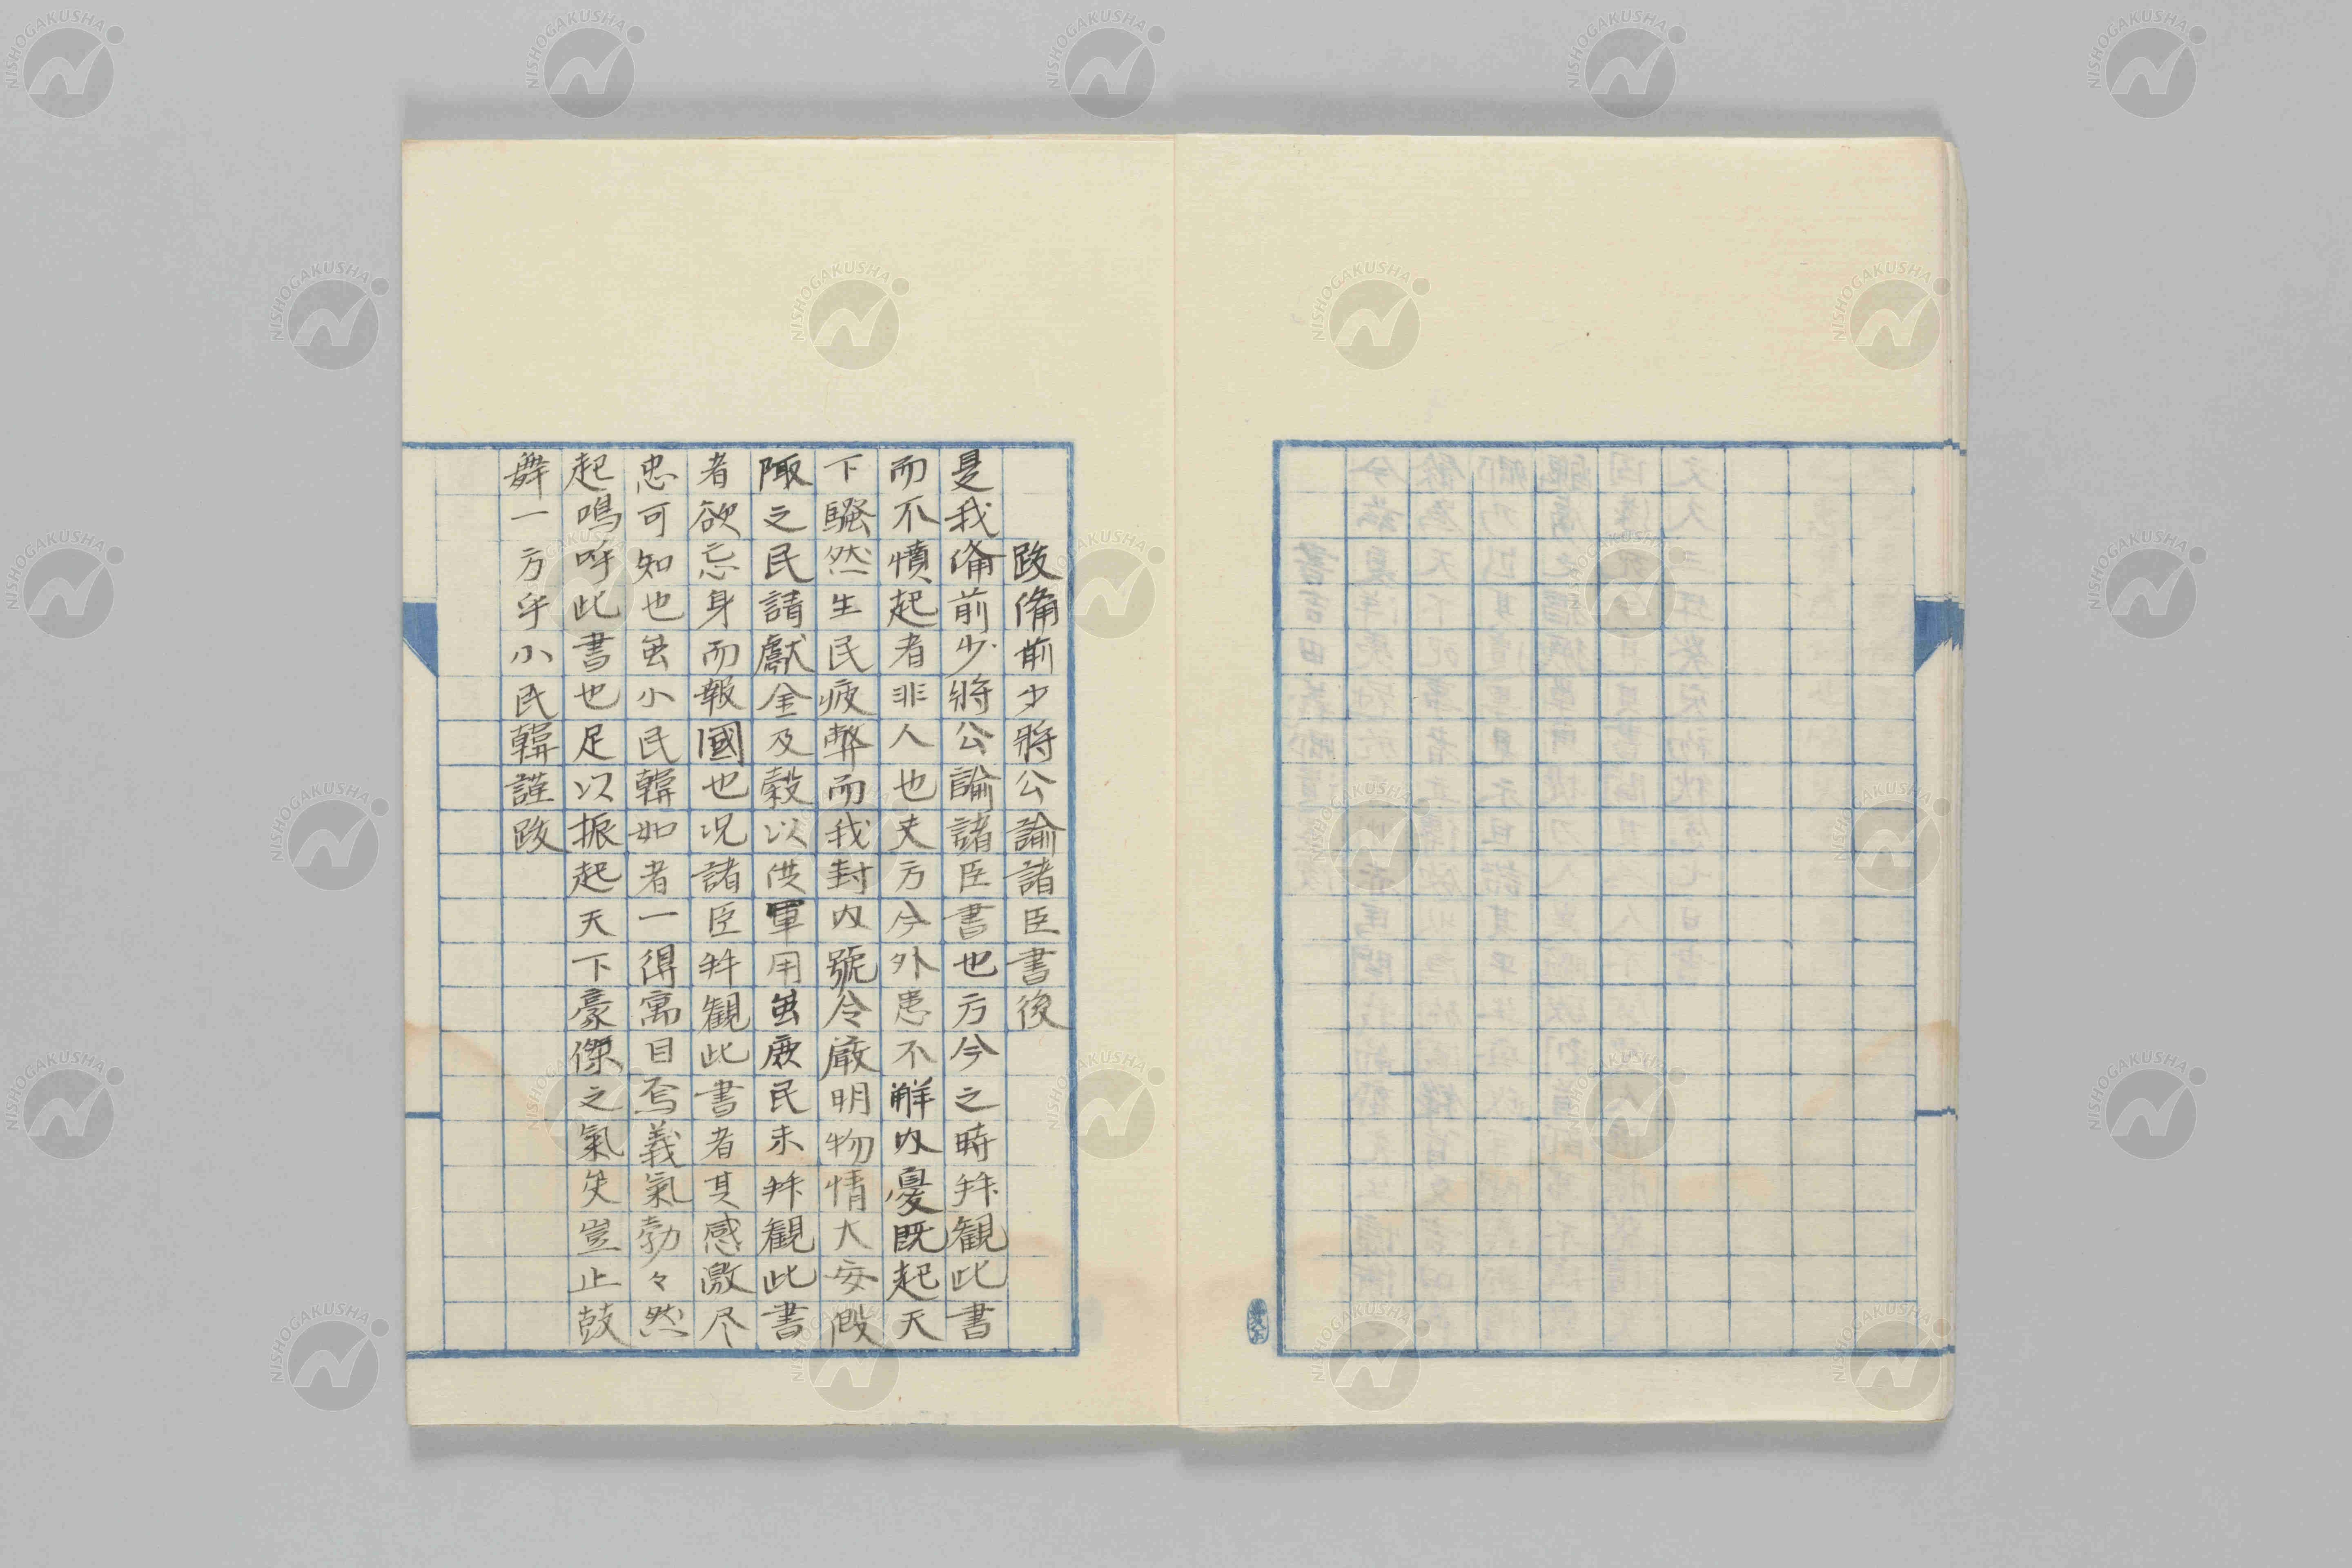 跋備前少將公諭諸臣書後
是我備前少將公諭諸臣書也方今之時拜觀此書
而不憤起者非人也夫方今外患不解内憂既起天
下騷然生民疲弊而我封内號令嚴明物情大安僻
陬之民請獻金及穀以供軍用虽厥民未拜觀此書
者欲忘身而報國也况諸臣拜觀此書者其感激尽
忠可知也虽小民韓如者一得寓目焉義氣勃々然
起嗚呼此書也足以振起天下豪傑之氣矣豈止鼓
舞一方乎小民韓謹跋
NISHOGAKUSHA